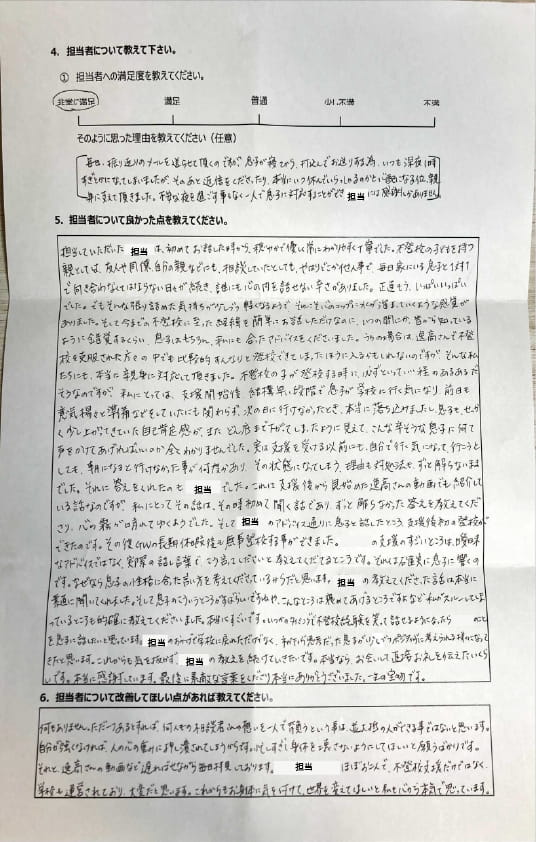 4. 担当者について教えて下さい。
① 担当者への満足度を教えてください。
非常に満足 満足 普通 少し不満 不満
そのように思った理由を教えてください（任意）
毎日、振り返りのメールを送らせて頂くのですが、息子が寝てから、打ち込んでお送りする為、いつも深夜1時
担当 には感謝しかありません。
5. 担当者について良かった点を教えてください。
担当していただいた 担当 は、初めてお話しした時から、穏やかで優しく常にわかりやすく丁寧でした。不登校の子どもを持つ
親としては、友人や同僚、自分の親などにも、相談していたとしても、やはりどこか他人事で、毎日家にいる息子と1対1
で向き合わなくてはならない日々が続き、誰にも心の内を話せない辛さがありました。正直もう、いっぱいいっぱい
でした。でもそんな張り詰めた気持ちが少しずつ軽くなるようで、それこそ心のコップに水が溜まっていくような感覚が
ありました。そして今までの不登校に至った経緯を簡単にお話ししただけなのに、いつの間にか、昔から知っている
ように会話をするくらい、息子はもちろん、私にも合ったアドバイスをくださいました。うちの場合は、逸高さんで不登
校を克服された方々の中でも比較的すんなりと登校できましたほうに入るかもしれないのですが、そんな私
たちにも、本当に親身に対応して頂きました。不登校の子が登校する時に、必ずといっていい程のあるあるだ
そうなのですが、私にとっては、支援開始後、結構早い段階で息子が学校に行く気になり、前日も
意気揚々と準備などをしていたにも関わらず、次の日に行けなかったとき、本当に落ち込みましたし、息子も、せっか
く少し上がってきていた自己肯定感が、またどん底まで下がってしまったように見えて、こんな辛そうな息子に何て
声をかけてあげればいいのか全くわかりませんでした。実は支援を受ける以前にも、自分で行く気になって、行こうと
しても、朝になると行けなかった事が何度かあり、その状態になってしまう理由も対処法も、ずっと解らないまま
でした。それに答えをくれたのも 担当 でした。これは支援後から見始めた逸高さんの動画でも紹介して
いる話なのですが、私にとってその話は、その時初めて聞く話であり、ずっと解らなかった答えを教えてくだ
さり、心の霧が晴れてゆくようでした。そして 担当 のアドバイス通りに息子と話したところ、支援後初の登校が
できたのです。その後GWの長期休暇後も無事登校する事ができました。 の支援のすごいところは、曖昧
なアドバイスではなく、実際の話し言葉で、こう言ってくださいと教えてくださるところです。それくらい確実に息子に響くの
です。なぜなら息子の性格に合った言い方を考えてくださっているからだと思います。担当 の教えてくださった話は本当に
普通に聞いてくれました。そして息子のこういうところがすばらしいですねや、こんなところは褒めてあげるところですよなど私がスルーしてしま
っているところも的確に教えてくださいました。本当にすごいです。いつかのタイミングで不登校経験を笑って話せるようになったら のこと
を息子に話したいと思っています。担当 のおかげで学校に戻れただけでなく、
きたと思います。これからも気を抜かず 担当 の教えを続けてしきたいです。本当なら、お会いして直接お礼を伝えたいくら
いです。本当に感謝しています。最後に素敵な言葉をくださり本当にありがとうございました。一生の宝物です。
6. 担当者について改善してほしい点があれば教えてください。
何もありません。ただ一つあるとすれば、何人もの相談者さんの想いを一人で背負うという事は、並大抵の人ができる事ではないと思います。
自分が強くなければ、人の心の重みにより押し潰されてしまうからです。
それと、逸高さんの動画など遅ればせながら毎日拝見しております。担当 ほぼお二人で、不登校支援だけではなく、
学校も運営されており、大変だと思います。これからもお身体に気を付けて、世界を変えてほしいと私も心から本気で思っています。